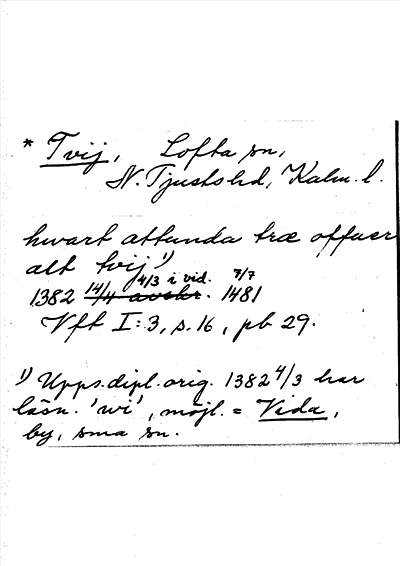 * Tvij, Lofta sn,
N. Tjusts hd, Kalm. l.
hwart attunda træ offuer
alt tvij 1)
4/3 i vid. 7/7
1382 14/4 avskr. 1481
Vft I:3, s. 16, pb 29.
1) Upps. dipl. orig. 1382 4/3 har
läsn. 'wi', möjl. = Vida,
by, sma sn.